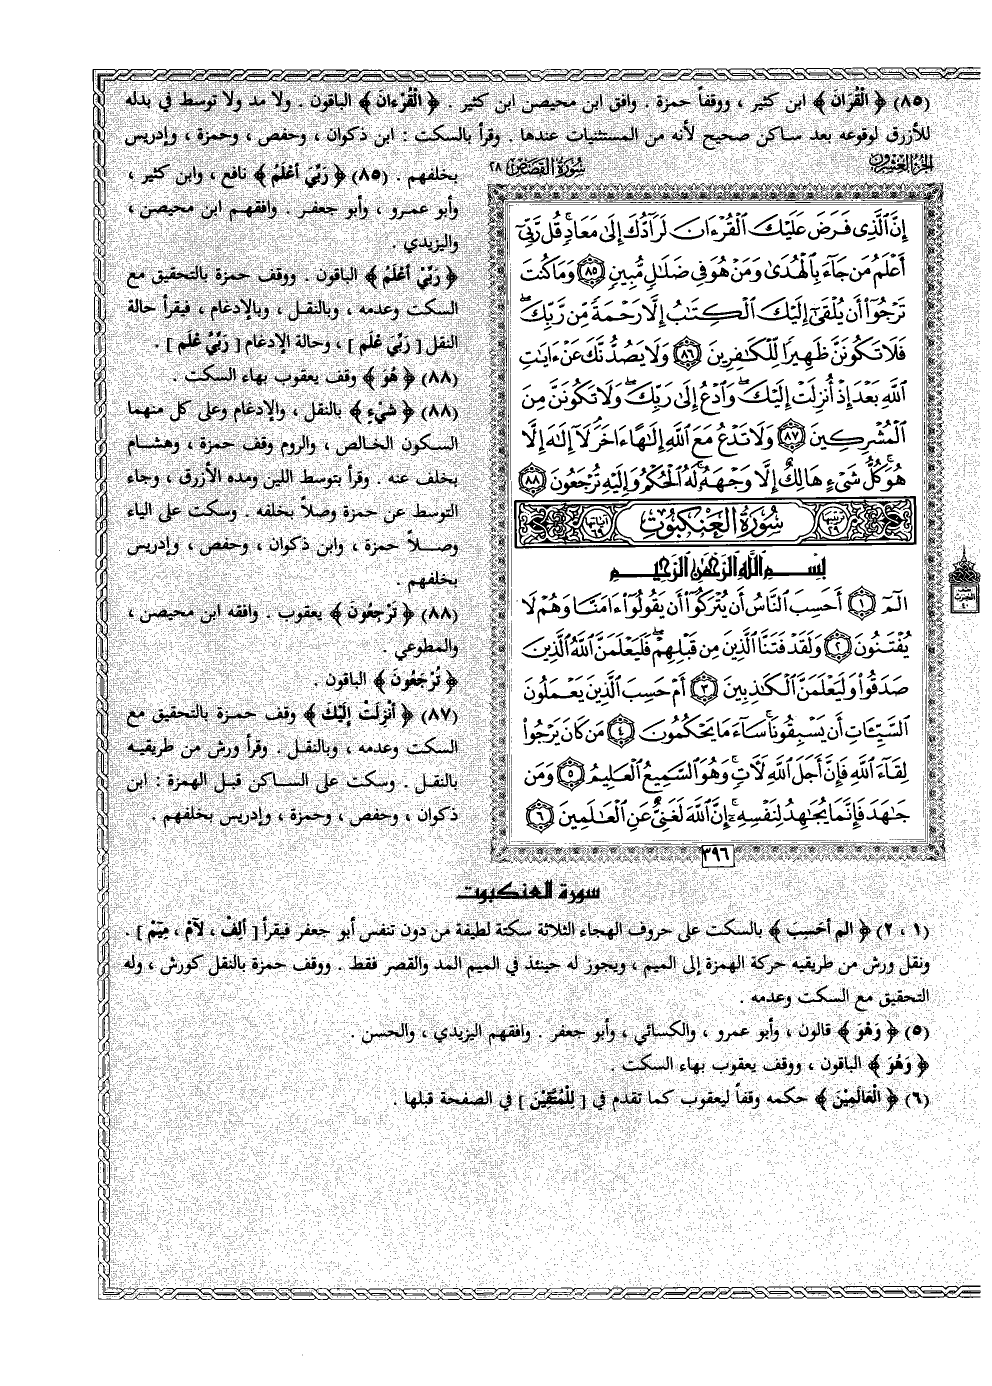 (٨٥) ﴿ الْقُرَانَ ﴾ ابن كثير ، ووقفاً حمزة . وافق ابن محيصن ابن كثير . ﴿ الْقُرْءَانَ ﴾ الباقون . ولا مد ولا توسط في بدله
للأزرق لوقوعه بعد ساكن صحيح لأنه من المستثنيات عندها . وقرأ بالسكت : ابن ذكوان ، وحفص ، وحمزة ، وإدريس
بخلفهم . (٨٥) ﴿ رَبِّيَ أَعْلَمُ ﴾ نافع ، وابن كثير ،
وأبو عمرو ، وأبو جعفر . وافقهم ابن محيصن ،
واليزيدي .
﴿ رَبِّيْ أَعْلَمُ ﴾ الباقون . ووقف حمزة بالتحقيق مع
السكت وعدمه ، وبالنقل ، وبالإدغام ، فيقرأ حالة
النقل [ رَبِّيَ عْلَم ] ، وحالة الإدغام [ رَبِّيَّ عْلَم ] .
(٨٨) ﴿ هُوَ ﴾ وقف يعقوب بهاء السكت .
(٨٨) ﴿ شَيْءٍ ﴾ بالنقل ، والإدغام وعلى كل منهما
السكون الخالص ، والروم وقف حمزة ، وهشام
بخلف عنه . وقرأ بتوسط اللين ومده الأزرق ، وجاء
التوسط عن حمزة وصلاً بخلفه . وسكت على الياء
وصلاً حمزة ، وابن ذكوان ، وحفص ، وإدريس
بخلفهم .
(٨٨) ﴿ تَرْجِعُونَ ﴾ يعقوب . وافقه ابن محيصن ،
والمطوعي .
﴿ تُرْجَعُونَ ﴾ الباقون .
(٨٧) ﴿ أُنْزِلَتْ إِلَيْكَ ﴾ وقف حمزة بالتحقيق مع
السكت وعدمه ، وبالنقل . وقرأ ورش من طريقيه
بالنقل . وسكت على الساكن قبل الهمزة : ابن
ذكوان ، وحفص ، وحمزة ، وإدريس بخلفهم .
الجزء العشرون
سُورَةُ القَصَصِ ٢٨
إِنَّ ٱلَّذِى فَرَضَ عَلَيْكَ ٱلْقُرْءَانَ لَرَآدُّكَ إِلَىٰ مَعَادٍ قُل رَّبِّىٓ
أَعْلَمُ مَن جَآءَ بِٱلْهُدَىٰ وَمَنْ هُوَ فِى ضَلَٰلٍ مُّبِينٍ ٨٥ وَمَا كُنتَ
تَرْجُوٓا۟ أَن يُلْقَىٰٓ إِلَيْكَ ٱلْكِتَٰبُ إِلَّا رَحْمَةً مِّن رَّبِّكَ
فَلَا تَكُونَنَّ ظَهِيرًا لِّلْكَٰفِرِينَ ٨٦ وَلَا يَصُدُّنَّكَ عَنْ ءَايَٰتِ
ٱللَّهِ بَعْدَ إِذْ أُنزِلَتْ إِلَيْكَ وَٱدْعُ إِلَىٰ رَبِّكَ وَلَا تَكُونَنَّ مِنَ
ٱلْمُشْرِكِينَ ٨٧ وَلَا تَدْعُ مَعَ ٱللَّهِ إِلَٰهًا ءَاخَرَ لَآ إِلَٰهَ إِلَّا
هُوَ كُلُّ شَىْءٍ هَالِكٌ إِلَّا وَجْهَهُۥ لَهُ ٱلْحُكْمُ وَإِلَيْهِ تُرْجَعُونَ ٨٨
سُورَةُ العَنكَبُوتِ
بِسْمِ ٱللَّهِ ٱلرَّحْمَٰنِ ٱلرَّحِيمِ
الٓمٓ ١ أَحَسِبَ ٱلنَّاسُ أَن يُتْرَكُوٓا۟ أَن يَقُولُوٓا۟ ءَامَنَّا وَهُمْ لَا
يُفْتَنُونَ ٢ وَلَقَدْ فَتَنَّا ٱلَّذِينَ مِن قَبْلِهِمْ فَلَيَعْلَمَنَّ ٱللَّهُ ٱلَّذِينَ
صَدَقُوا۟ وَلَيَعْلَمَنَّ ٱلْكَٰذِبِينَ ٣ أَمْ حَسِبَ ٱلَّذِينَ يَعْمَلُونَ
ٱلسَّيِّـَٔاتِ أَن يَسْبِقُونَا سَآءَ مَا يَحْكُمُونَ ٤ مَن كَانَ يَرْجُوا۟
لِقَآءَ ٱللَّهِ فَإِنَّ أَجَلَ ٱللَّهِ لَـَٔاتٍ وَهُوَ ٱلسَّمِيعُ ٱلْعَلِيمُ ٥ وَمَن
جَٰهَدَ فَإِنَّمَا يُجَٰهِدُ لِنَفْسِهِۦٓ إِنَّ ٱللَّهَ لَغَنِىٌّ عَنِ ٱلْعَٰلَمِينَ ٦
٣٩٦
سورة العنكبوت
(١ ، ٢) ﴿ الم أَحَسِبَ ﴾ بالسكت على حروف الهجاء الثلاثة سكتة لطيفة من دون تنفس أبو جعفر فيقرأ [ أَلِفْ ، لَآمْ ، مِّيمْ ] .
ونقل ورش من طريقيه حركة الهمزة إلى الميم ، ويجوز له حينئذ في الميم المد والقصر فقط . ووقف حمزة بالنقل كورش ، وله
التحقيق مع السكت وعدمه .
(٥) ﴿ وَهْوَ ﴾ قالون ، وأبو عمرو ، والكسائي ، وأبو جعفر . وافقهم اليزيدي ، والحسن .
﴿ وَهُوَ ﴾ الباقون ، ووقف يعقوب بهاء السكت .
(٦) ﴿ الْعَالَمِيْنَ ﴾ حكمه وقفاً ليعقوب كما تقدم في [ لِلْمُتَّقِيْنَ ] في الصفحة قبلها .